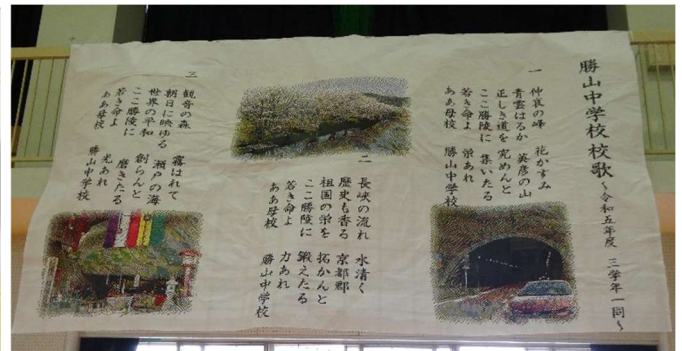 勝山中学校校歌 ~令和五年度 三学年一同~
一
仲哀の峰 花かすみ
青雲はるか 英彦の山
正しき道を 究めんと
ここ勝陵に 集いたる
若き命よ 栄あれ
ああ母校 勝山中学校
二
長峡の流れ 水清く
歴史も香る 京都郡
祖国の栄を 拓かんと
ここ勝陵に 鍛えたる
若き命よ 力あれ
ああ母校 勝山中学校
三
観音の森 霧はれて
朝日に映ゆる 瀬戸の海
世界の平和 創らんと
ここ勝陵に 磨きたる
若き命よ 光あれ
ああ母校 勝山中学校